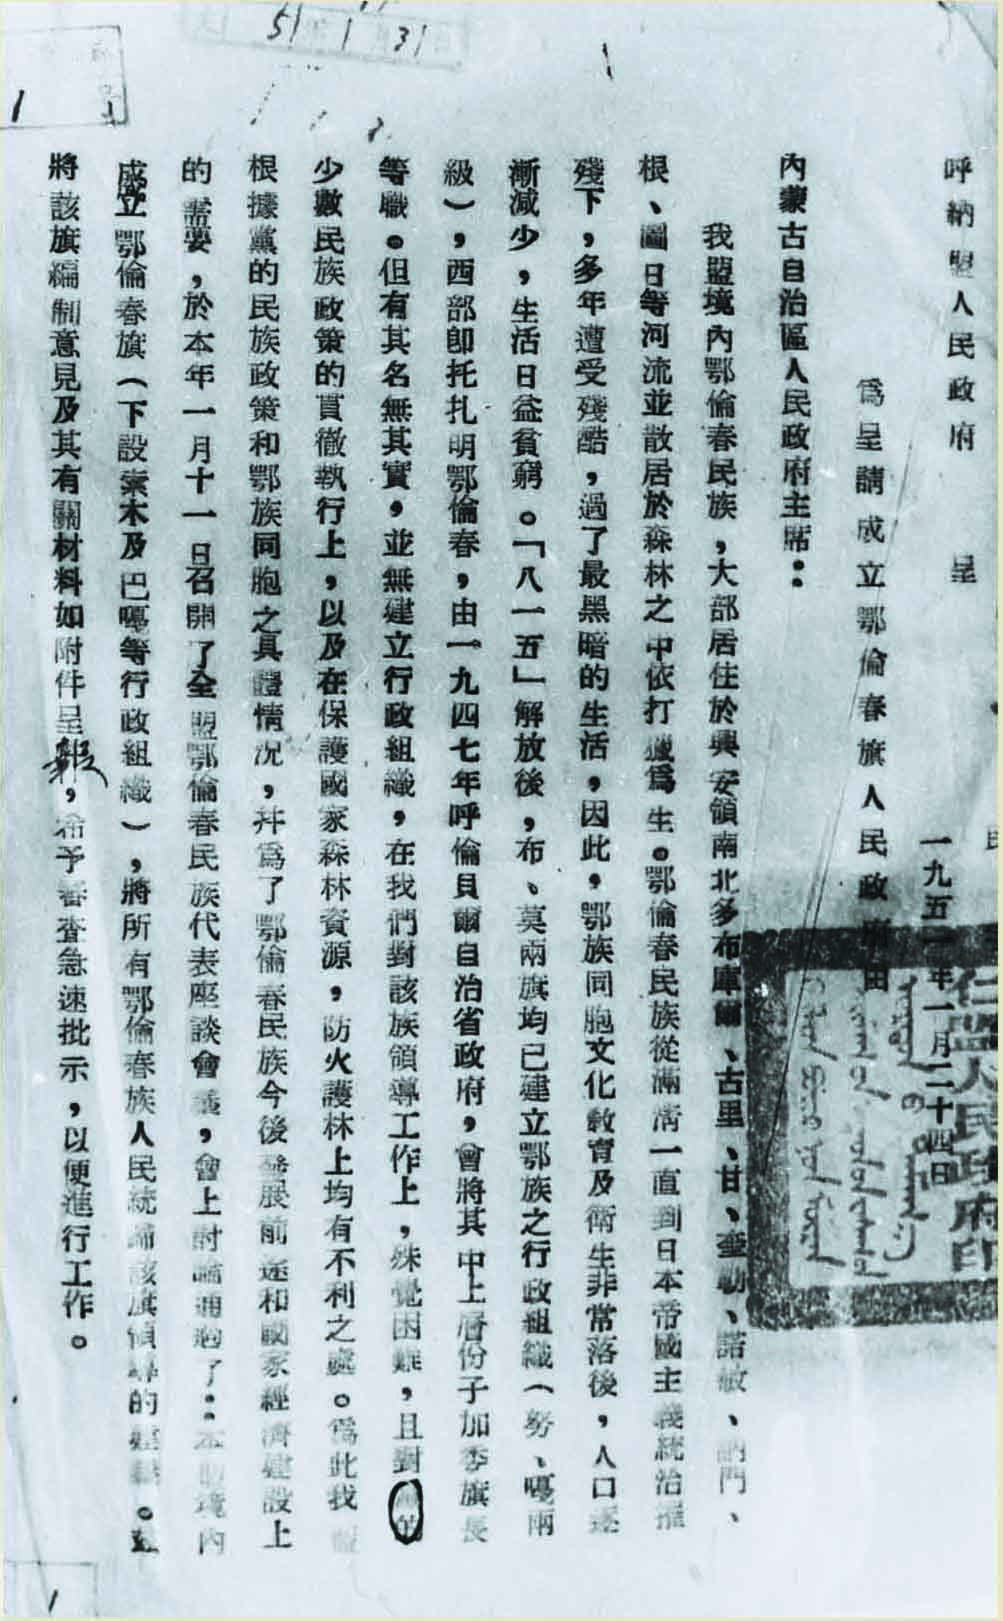 51 1 31
1
呼納盟人民政府 呈
一九五一年一月二十四日
爲呈請成立鄂倫春旗人民政府由
內蒙古自治區人民政府主席：
我盟境內鄂倫春民族，大部居住於興安領南北多布庫爾、古里、甘、奎勒、諾敏、訥門、
根、圖日等河流並散居於森林之中依打獵爲生。鄂倫春民族從滿清一直到日本帝國主義統治摧
殘下，多年遭受殘酷，過了最黑暗的生活，因此，鄂族同胞文化敎育及衛生非常落後，人口逐
漸減少，生活日益貧窮。「八一五」解放後，布、莫兩旗均已建立鄂族之行政組織（努、嘎兩
級），西部卽托扎明鄂倫春，由一九四七年呼倫貝爾自治省政府，會將其中上層份子加委旗長
等職。但有其名無其實，並無建立行政組織，在我們對該族領導工作上，殊覺困難，且對
少數民族政策的貫徹執行上，以及在保護國家森林資源，防火護林上均有不利之處。爲此我盟
根據黨的民族政策和鄂族同胞之具體情况，幷爲了鄂倫春民族今後發展前途和國家經濟建設上
的需要，於本年一月十一日召開了全盟鄂倫春民族代表座談會議，會上討論通過了：本盟境內
成立鄂倫春旗（下設索木及巴嘎等行政組織），將所有鄂倫春族人民統歸該旗領導的建議。
將該旗編制意見及其有關材料如附件呈報，希予審查急速批示，以便進行工作。
盟人民政府印
1